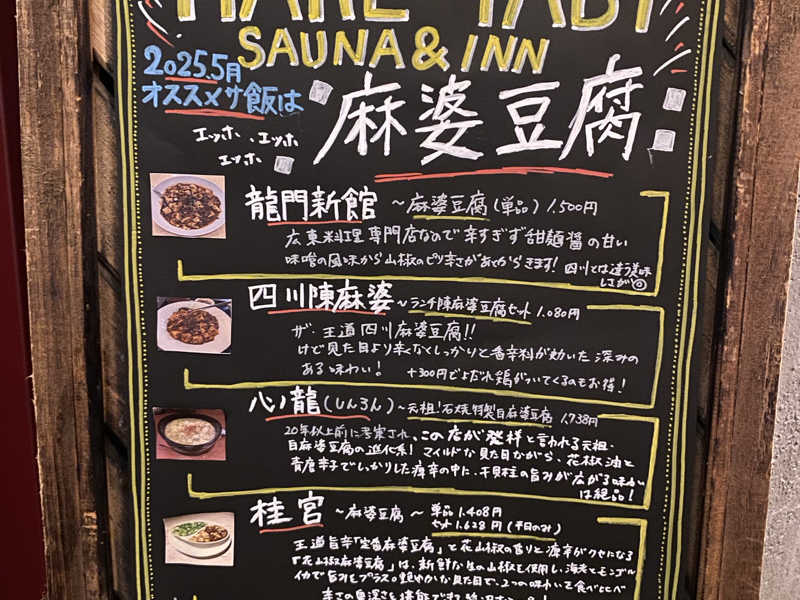 HARE-TABI
SAUNA & INN
2025.5月
オススメサ飯は
エッホ、エッホ
エッホ
麻婆豆腐
龍門新館 〜麻婆豆腐(単品) 1.500円
広東料理専門店なので辛すぎず甜麺醤の甘い
味噌の風味から山椒のピリ辛さがあとからきます!四川とは違う美味
しさが◎
四川陳麻婆〜ランチ陳麻婆豆腐セット 1.080円
ザ・王道四川麻婆豆腐!!
けど見た目より辛くなくしっかりと香辛料が効いた深みの
ある味わい! +300円でよだれ鶏がついてくるのもお得!
心ノ龍(しんろん)〜元祖!石焼特製白麻婆豆腐 1.738円
20年以上前に考案され、この店が発祥と言われる元祖・
白麻婆豆腐の進化系!マイルドな見た目ながら、花椒油と
青唐辛子でしっかりした痺辛の中に、干貝柱の旨みが広がる味わい
は絶品!
桂宮 〜麻婆豆腐〜 単品 1.408円
セット 1.628円(平日のみ)
王道旨辛「定番麻婆豆腐」と花山椒の香りと痺辛がクセになる
「花山椒麻婆豆腐」は、新鮮な生の山椒を使用し、海老とモンゴル
イカで旨みをプラスの艶やかな見た目で、2つの味わいを食べ比べ
辛さの奥深さを堪能できる